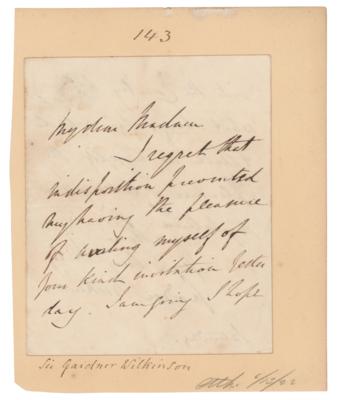 143
My dear Madam
I regret that
indisposition prevented
my having the pleasure
of availing myself of
your kind invitation Yester
day. I am going I hope
Sir Gardner Wilkinson